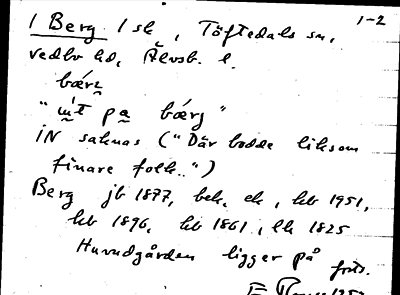 1-2
1 Berg 1 sk, Töftedals sn,
Vedbo hd, Älvsb. l.
bærj
"ut på bærj"
IN saknas ("Där bodde liksom
finare folk.")
Berg jb 1877, bek. ek, kb 1951,
kb 1896, kb 1861, lk 1825
Huvudgården ligger på